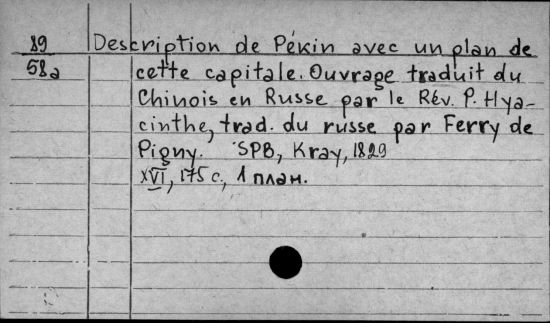 89 Description de Pékin avec un plan de
58a cette capitale. Ouvrage traduit du
Chinois en Russe par le Rév. P. Hya-
cinthe, trad. du russe par Ferry de
Pigny. SPB, Kray, 1829
XVI, 175 с, 1 план.